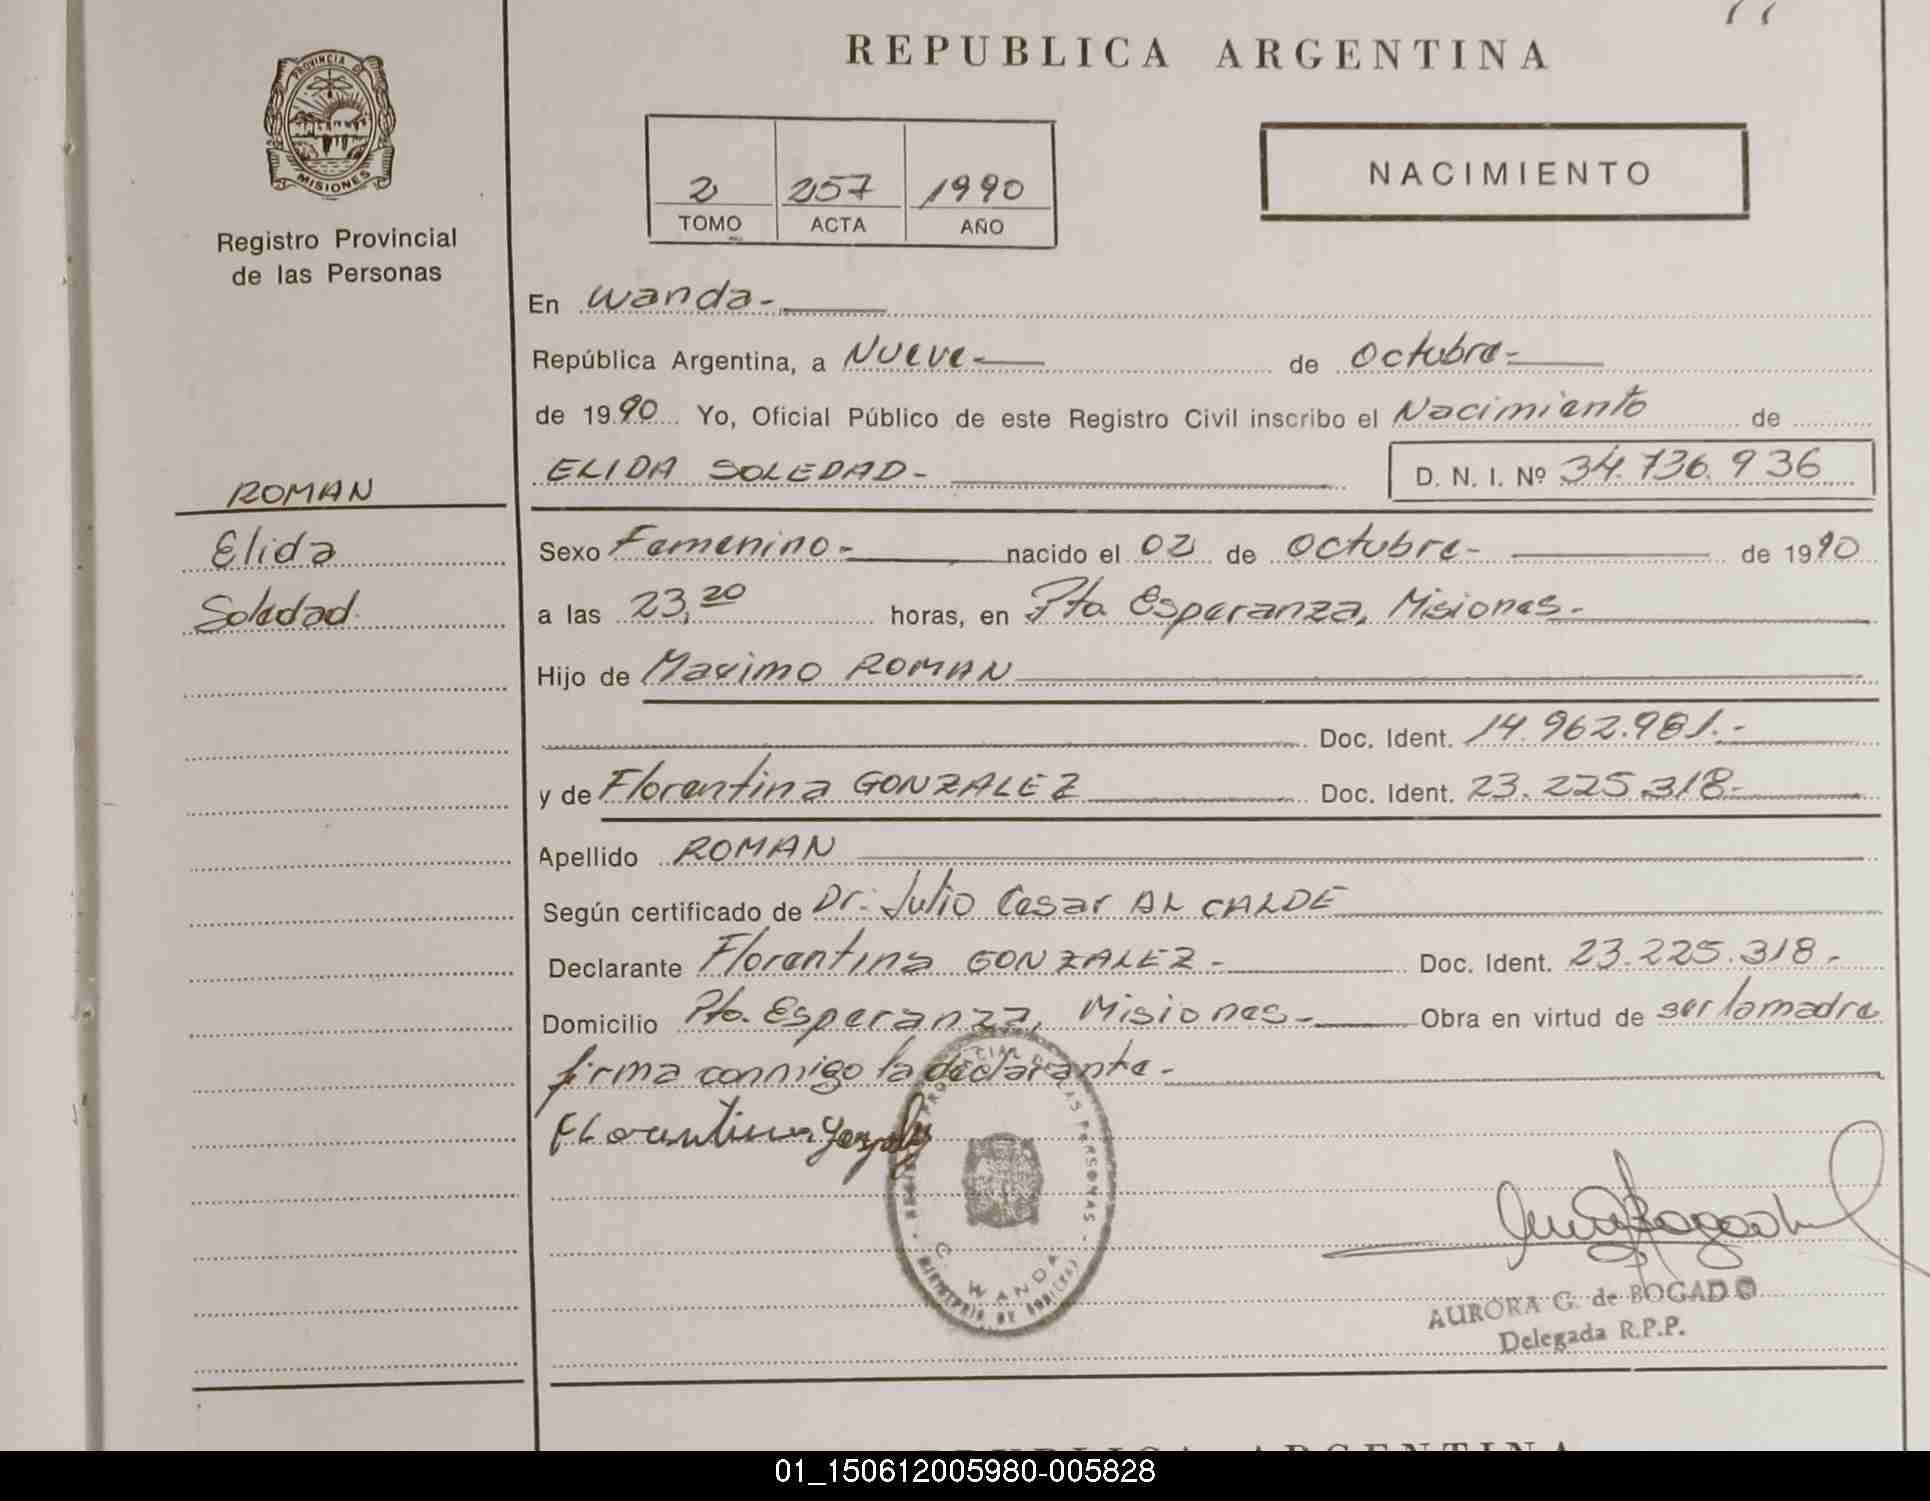 REPUBLICA ARGENTINA
PROVINCIA DE
MISIONES
Registro Provincial
de las Personas
2 257 1990
TOMO ACTA AÑO
NACIMIENTO
En Wanda-
República Argentina, a Nueve- de Octubre-
de 1990 Yo, Oficial Público de este Registro Civil inscribo el Nacimiento de
ELIDA SOLEDAD- D. N. I. Nº 34.736.936
ROMAN
Elida
Soledad.
Sexo Femenino.- nacido el 02 de Octubre- de 1990
a las 23,20 horas, en Pto. Esperanza, Misiones.-
Hijo de Maximo ROMAN
Doc. Ident. 14.962.981.-
y de Florentina GONZALEZ Doc. Ident. 23.225.318-
Apellido ROMAN
Según certificado de Dr. Julio Cesar ALCALDE
Declarante Florentina GONZALEZ- Doc. Ident. 23.225.318.-
Domicilio Pto. Esperanza, Misiones- Obra en virtud de ser la madre
firma conmigo la declarante-
Florentina
PERSONAS
WANDA
AURORA G. de BOGADO
Delegada R.P.P.
REPUBLICA ARGENTINA
01_150612005980-005828